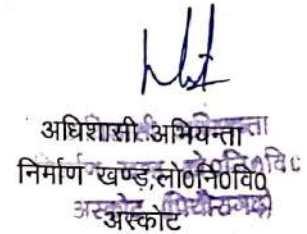 अधिशासी अभियन्ता
निर्माण खण्ड,लो0नि0वि0
अस्कोट